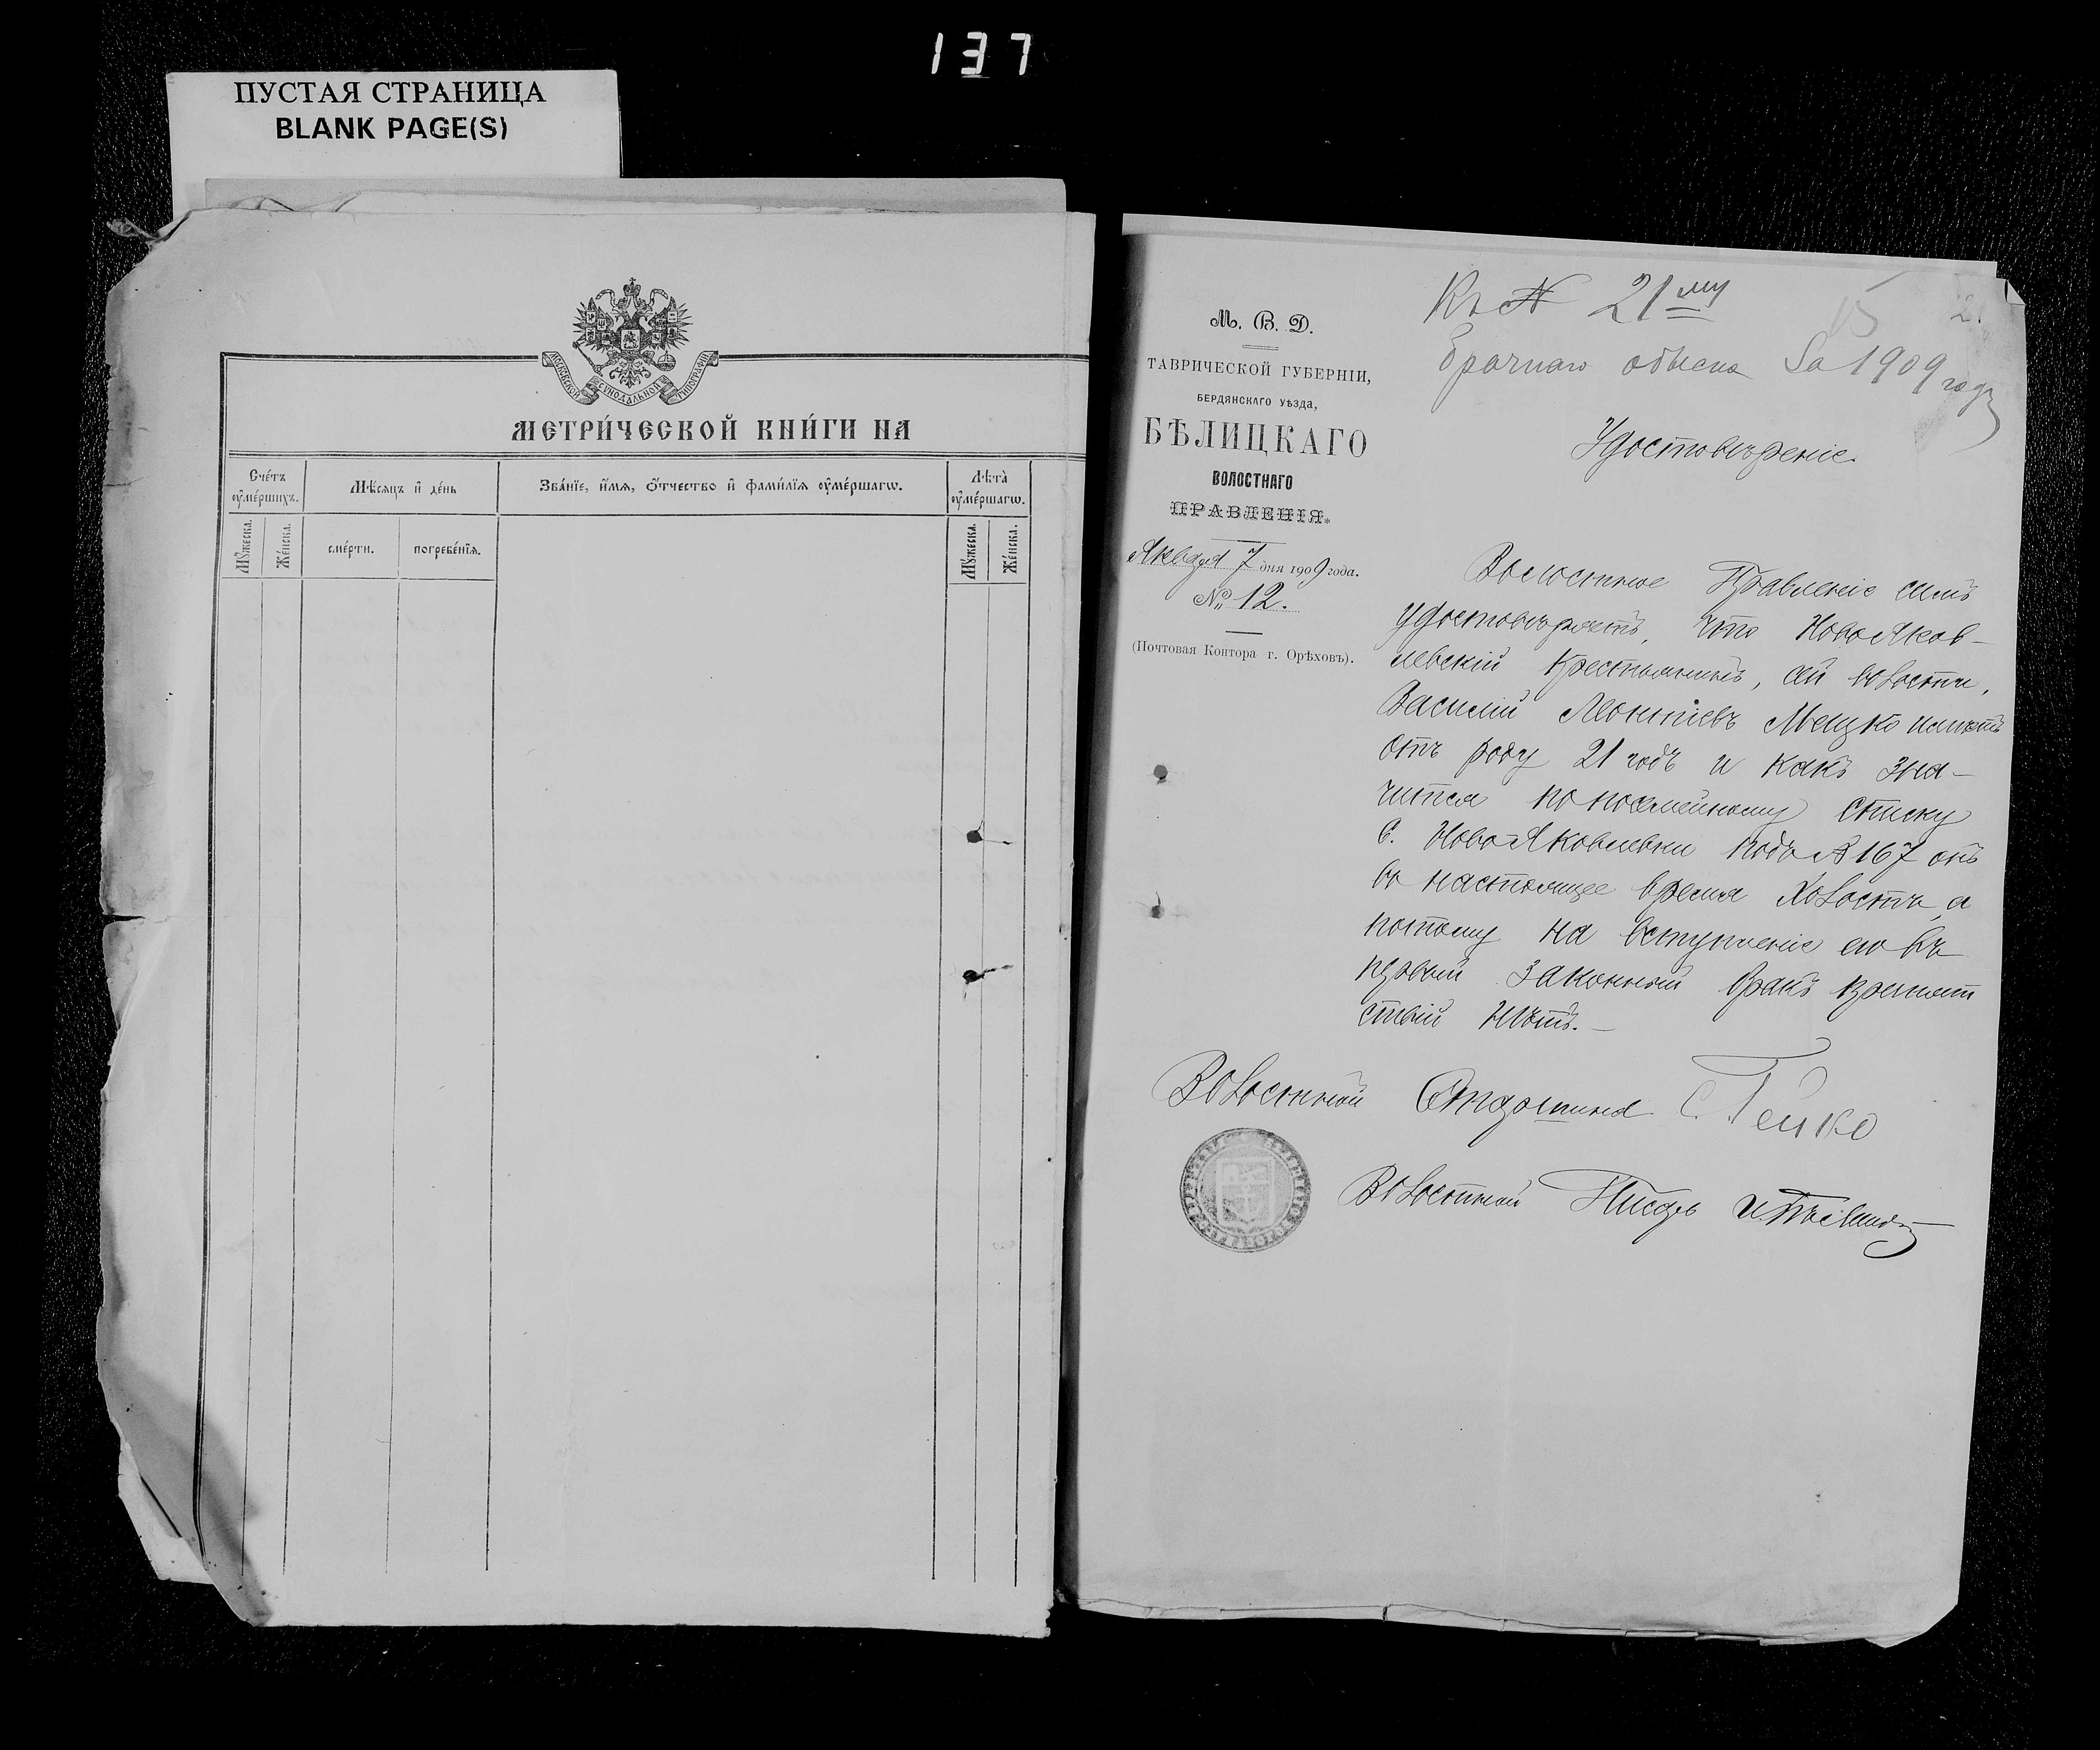 137
ПУСТАЯ СТРАНИЦА
BLANK PAGE(S)
МОСКОВСКОЙ СѴНОДАЛЬНОЙ ТИПОГРАФІИ
МЕТРИ́ЧЕСКОЙ КНИ́ГИ НА
Сче́тъ ᲂу҆ме́ршихъ.
Мѣ́сяцъ и҆ де́нь
Зва́нїе, и҆́мѧ, ѻ҆́тчество и҆ фами́лїѧ ᲂу҆ме́ршагѡ.
Лѣта̀ ᲂу҆ме́ршагѡ.
Мꙋ́жеска.
Же́нска.
сме́рти.
погребе́нїѧ.
Мꙋ́жеска.
Же́нска.
Къ № 21му
Брачнаго обыска за 1909 годъ
15
М. В. Д.
ТАВРИЧЕСКОЙ ГУБЕРНІИ,
БЕРДЯНСКАГО УѢЗДА,
БѢЛИЦКАГО
ВОЛОСТНАГО
ПРАВЛЕНІЯ.
Января 7 дня 1909 года.
№ 12.
(Почтовая Контора г. Орѣховъ).
Удостовѣреніе.
Волостное Правленіе симъ
удостовѣряетъ, что Новояков-
левскій крестьянинъ, сей волости,
Василій Леонтіевъ Мецко имѣетъ
отъ роду 21 годъ и какъ зна-
чится по посемейному списку
с. Новояковлевки подъ № 167 онъ
въ настоящее время холостъ, а
потому на вступленіе его въ
первый законный бракъ препят
ствій нѣтъ.—
Волостной Старшина С. Гейко
Волостной Писарь